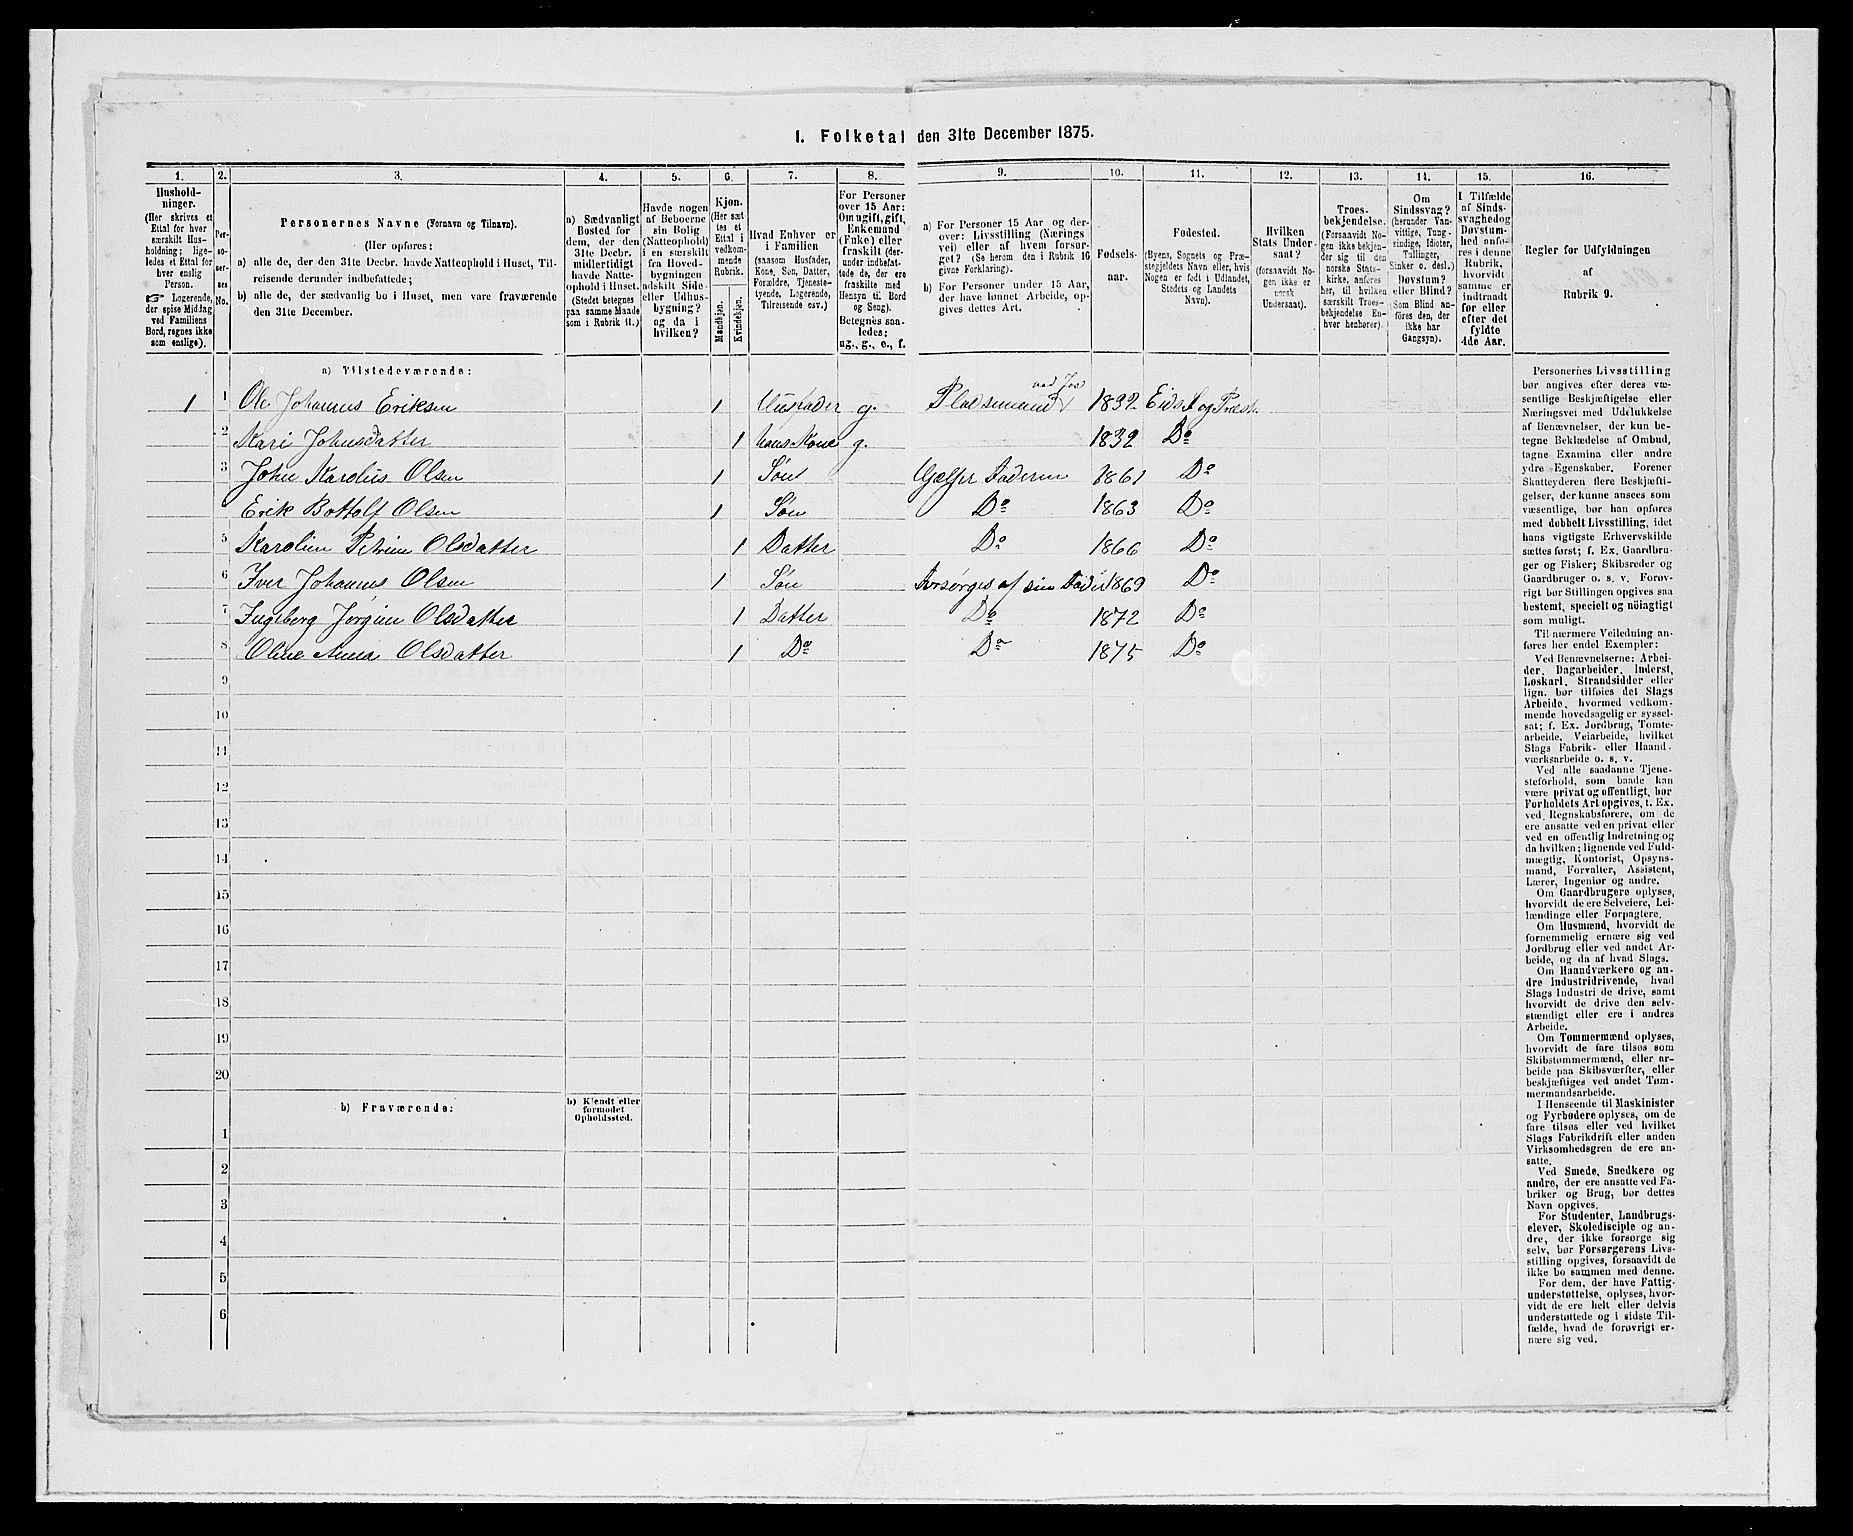 1. Folketal den 31te December 1875.
1. 2. 3. 4. 5. 6. 7. 8. 9. 10. 11. 12. 13. 14. 15. 16.
Hushold-
ninger.
(Her skrives et
Ettal for hver
særskilt Hus-
holdning; lige-
ledes et Ettal for
hver enslig
Person.
☞ Logerende,
der spise Middag
ved Familiens
Bord, regnes ikke
som enslige).
Per-
so-
ner-
nes
No.
Personernes Navne (Fornavn og Tilnavn).
(Her opføres:
a) alle de, der den 31te Decbr. havde Natteophold i Huset, Til-
reisende derunder indbefattede;
b) alle de, der sædvanlig bo i Huset, men vare fraværende
den 31te December.
a) Sædvanligt
Bosted for
dem, der den
31te Decbr.
midlertidigt
havde Natte-
ophold i Huset.
(Stedet betegnes
paa samme Maade
som i Rubrik 11.)
Havde nogen
af Beboerne
sin Bolig
(Natteophold)
i en særskilt
fra Hoved-
bygningen
adskilt Side-
eller Udhus-
bygning?
og da i
hvilken?
Kjøn.
(Her sæt-
tes et
Ettal i
vedkom-
mende
Rubrik.
Mandkjøn.
Kvindekjøn.
Hvad Enhver er
i Familien
(saasom Husfader,
Kone, Søn, Datter,
Forældre, Tjeneste-
tyende, Logerende,
Tilreisende osv.)
For Personer
over 15 Aar:
Om ugift, gift,
Enkemand
(Enke) eller
fraskilt (der-
under indbefat-
tede de, der ere
fraskilte med
Hensyn til Bord
og Seng).
Betegnes saa-
ledes:
ug., g., e., f.
a) For Personer 15 Aar og der-
over: Livsstilling (Nærings
vei) eller af hvem forsør-
get? (Se herom den i Rubrik 16
givne Forklaring).
b) For Personer under 15 Aar,
der have lønnet Arbeide, op-
gives dettes Art.
Fødsels-
aar.
Fødested.
(Byens, Sognets og Præ-
stegjeldets Navn eller, hvis
Nogen er født i Udlandet,
Stedets og Landets
Navn).
Hvilken
Stats Under-
saat?
(forsaavidt No-
gen ikke er
norsk
Undersaat).
Troes-
bekjendelse.
(Forsaavidt No-
gen ikke bekjen-
der sig til den
norske Stats-
kirke, anføres
her, til hvilken
særskilt Troes-
bekjendelse En-
hver henhører).
Om
Sindssvag?
(herunder Van-
vittige, Tung-
sindige, Idioter,
Tullinger,
Sinker o. desl.)
Døvstum?
eller Blind?
(Som Blind an-
føres den, der
ikke har
Gangsyn).
I Tilfælde
af Sinds-
svaghed og
Døvstum-
hed anfø-
res i denne
Rubrik,
hvorvidt
samme er
indtraadt
før eller
efter det
fyldte
4de Aar.
Regler for Udfyldningen
af
Rubrik 9.
a) Tilstedeværende:
1 1 Ole Johannes Eriksen 1 Husfader g. Pladsemand ved Jor 1832 Eids S. og Præst.
2 Kari Johnsdatter 1 hans Kone g. 1832 Do
3 John Karolius Olsen 1 Søn Hjælper Faderen 1861 Do
Erik Bottolf Olsen 1 Søn Do 1863 Do
5 Karolin Petrine Olsdatter 1 Datter Do 1866 Do
6 Iver Johannes Olsen 1 Søn Forsørges af sin Fader 1869 Do
7 Ingeborg Jørgine Olsdatter 1 Datter Do 1872 Do
8 Oline Anna Olsdatter 1 Do Do 1875 Do
9
10
11
12
13
14
15
16
17
18
19
20
b) Fraværende:
b) Kjendt eller
formodet
Opholdssted.
1
2
3
4
5
6
Personernes Livsstilling
bør angives efter deres væ-
sentlige Beskjæftigelse eller
Næringsvei med Udelukkelse
af Benævnelser, der kun be-
tegne Beklædelse af Ombud,
tagne Examina eller andre
ydre Egenskaber. Forener
Skatteyderen flere Beskjæfti-
gelser, der kunne ansees som
væsentlige, bør han opføres
med dobbelt Livsstilling, idet
hans vigtigste Erhvervskilde
sættes først; f. Ex. Gaardbru-
ger og Fisker; Skibsreder og
Gaardbruger o. s. v. Forøv-
rigt bør Stillingen opgives saa
bestemt, specielt og nöiagtigt
som muligt.
Til nærmere Veiledning an-
føres her endel Exempler:
Ved Benævnelserne: Arbei-
der, Dagarbeider, Inderst,
Løskarl, Strandsidder eller
lign. bør tilføies det Slags
Arbeide, hvormed vedkom-
mende hovedsagelig er syssel-
sat; f. Ex. Jordbrug, Tomte-
arbeide, Veiarbeide, hvilket
Slags Fabrik- eller Haand-
værksarbeide o. s. v.
Ved alle saadanne Tjene-
steforhold, som baade kan
være privat og offentligt, bør
Forholdets Art opgives, t. Ex.
ved Regnskabsførere, om de
ere ansatte ved en privat eller
ved en offentlig Indretning og
da hvilken; lignende ved Fuld-
mægtig, Kontorist, Opsyns-
mand, Forvalter, Assistent,
Lærer, Ingeniør og andre.
Om Gaardbrugere oplyses,
hvorvidt de ere Selveiere, Lei-
lændinge eller Forpagtere.
Om Husmænd, hvorvidt de
fornemmelig ernære sig ved
Jordbrug eller ved andet Ar-
beide, og da af hvad Slags.
Om Haandværkere og an-
dre Industridrivende, hvad
Slags Industri de drive, samt
hvorvidt de drive den selv-
stændigt eller ere i andres
Arbeide.
Om Tømmermænd oplyses,
hvorvidt de fare tilsøs som
Skibstømmermænd, eller ar-
beide paa Skibsværfter, eller
beskjæftiges ved andet Tøm-
mermandsarbeide.
I Henseende til Maskinister
og Fyrbødere oplyses, om de
fare tilsøs eller ved hvilket
Slags Fabrikdrift eller anden
Virksomhedsgren de ere an-
satte.
Ved Smede, Snedkere og
andre, der ere ansatte ved Fa-
briker og Brug, bør dettes
Navn opgives.
For Studenter, Landbrugs-
elever, Skoledisciple og an-
dre, der ikke forsørge sig
selv, bør Forsørgerens Livs-
stilling opgives, forsaavidt de
ikke bo sammen med denne.
For dem, der have Fattig-
understøttelse, oplyses, hvor-
vidt de ere helt eller delvis
understøttede og i sidste Til-
fælde, hvad de forøvrigt er-
nære sig ved.